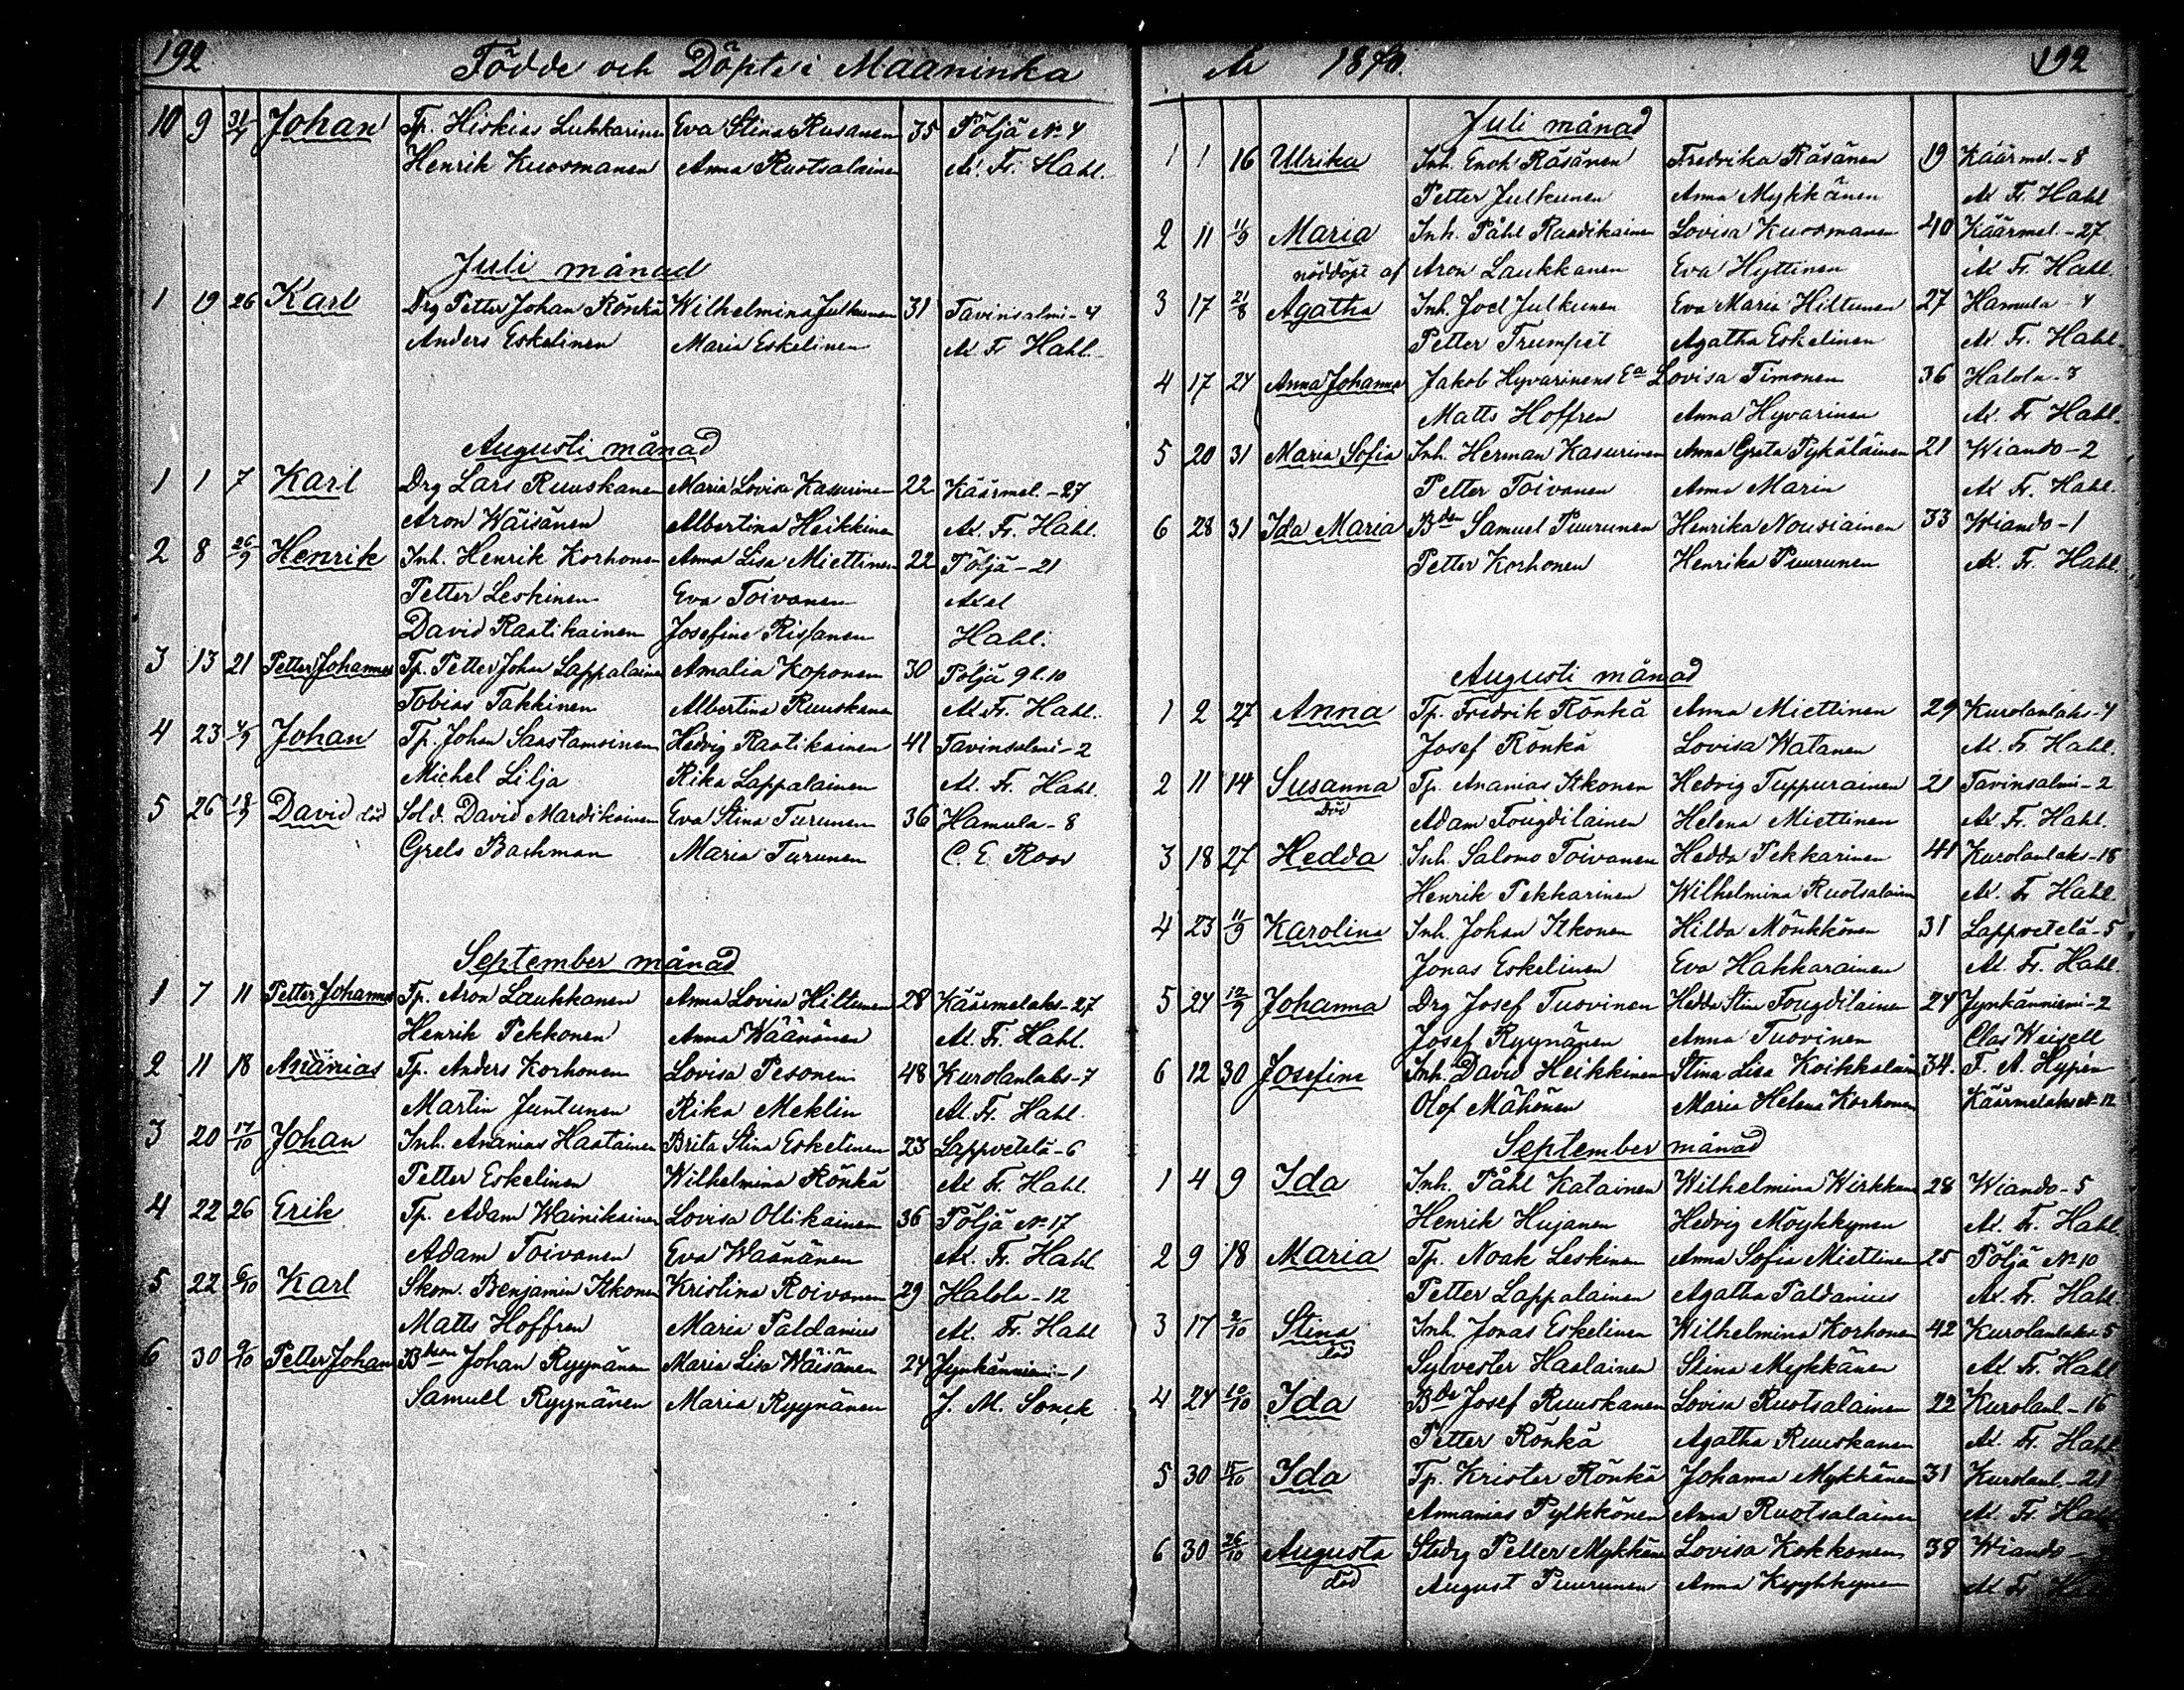 192 Födde och Döpte i Maaninka
10 9 31/7 Johan Tp. Hiskias Lukkarinen Eva Stina Rusanen 35 Pöljä No 4
Henrik Kuosmanen Anna Ruotsalainen Ax. Fr. Hahl.
Juli månad
1 19 26 Karl Drg Petter Johan Rönkä Wilhelmina Julkunen 31 Tavinsalmi - 4
Anders Eskelinen Maria Eskelinen Ax Fr Hahl.
Augusti månad
1 1 7 Karl Drg Lars Ruuskanen Maria Lovisa Kasurinen 22 Käärmel. - 27
Aron Wäisänen Albertina Heikkinen Ax. Fr. Hahl.
2 8 26/9 Henrik Inh. Henrik Korhonen Anna Lisa Miettinen 22 Pöljä - 21
Petter Leskinen Eva Toivanen Axel
David Raatikainen Josefina Rissanen Hahl.
3 13 21 Petter Johannes Tp. Petter Johan Lappalainen Amalia Koponen 30 Pöljä 9 l. 10
Tobias Takkinen Albertina Ruuskanen Ax Fr. Hahl.
4 23 4/9 Johan Tp. Johan Saastamoinen Hedvig Raatikainen 41 Tavinsalmi - 2
Michel Lilja Rika Lappalainen Ax. Fr. Hahl.
5 26 18/9 David död Sold. David Mardikainen Eva Stina Turunen 36 Hamula - 8
Grels Backman Maria Turunen C. E. Roos
September månad
1 7 11 Petter Johannes Tp. Aron Laukkanen Anna Lovisa Hiltunen 28 Käärmelaks - 27
Henrik Pekkonen Anna Wäänänen Ax. Fr. Hahl.
2 11 18 Ananias Tp. Anders Korhonen Lovisa Pesonen 48 Kurolanlaks - 7
Martin Juntunen Rika Meklin Ax. Fr. Hahl.
3 20 17/10 Johan Inh. Ananias Haatainen Brita Stina Eskelinen 23 Lappvetelä - 6
Petter Eskelinen Wilhelmina Rönkä Ax Fr. Hahl.
4 22 26 Erik Tp. Adam Wainikainen Lovisa Ollikainen 36 Pöljä No 17
Adam Toivanen Eva Wäänänen Ax. Fr. Hahl
5 22 6/10 Karl Skom. Benjamin Itkonen Kristina Roivanen 29 Halola - 12
Matts Hoffren Maria Paldanius Ax. Fr. Hahl
6 30 9/10 Petter Johan Johan Ryynänen Maria Lisa Wäisänen 24 Jynkänniemi - 1
Samuel Ryynänen Maria Ryynänen J. M. Sonck
År 1870. 192
Juli månad
1 1 16 Ulrika Inh. Enok Räsänen Fredrika Räsänen 19 Käärmel. - 8
Petter Julkunen Anna Mykkänen Ax Fr. Hahl
2 11 11/9 Maria Inh. Påhl Raudikainen Lovisa Kuosmanen 40 Käärmel. - 27
nöddöpt af Aron Laukkanen Eva Hyttinen Ax Fr. Hahl.
3 17 21/8 Agatha Inh. Joel Julkunen Eva Maria Hiltunen 27 Hamula - 4
Petter Trumpet Agatha Eskelinen Ax Fr. Hahl.
4 17 24 Anna Johanna Jakob Hyvarinens Ea Lovisa Timonen 36 Halola - 8
Matts Hoffren Anna Hyvarinen Ax. Fr. Hahl.
5 20 31 Maria Sofia Inh. Herman Kasurinen Anna Greta Pykäläinen 21 Wiando - 2
Petter Toivanen Anna Maria Ax Fr. Hahl.
6 28 31 Ida Maria Bden Samuel Puurunen Henrika Nousiainen 33 Wiando - 1
Petter Korhonen Henrika Puurunen Ax. Fr. Hahl.
Augusti månad
1 2 27 Anna Tp. Fredrik Rönkä Anna Miettinen 29 Kurolanlaks - 4
Josef Rönkä Lovisa Watanen Ax. Fr. Hahl.
2 11 14 Susanna Tp. Ananias Itkonen Hedvig Tuppurainen 21 Tavinsalmi - 2
död Adam Fougdilainen Helena Miettinen Ax. Fr. Hahl.
3 18 27 Hedda Inh. Salomo Toivanen Hedda Pekkarinen 41 Kurolanlaks - 18
Henrik Pekkarinen Wilhelmina Ruotsalainen Ax. Fr Hahl.
4 23 11/9 Karolina Inh. Johan Itkonen Hilda Mönkkönen 31 Lappvetelä - 5
Jonas Eskelinen Eva Hakkarainen Ax. Fr. Hahl.
5 24 12/9 Johanna Drg Josef Tuovinen Hedda Stina Fougdilainen 24 Jynkänniemi - 2
Josef Ryynänen Anna Tuovinen Clas Weisell
6 12 30 Josefine Inh. David Heikkinen Stina Lisa Koikkalain 34. F. A. Hypén
Olof Mähönen Maria Helena Korhonen Käärmelaks No 12
September månad
1 4 9 Ida Inh. Påhl Katainen Wilhelmina Wirkkunen 28 Wiando - 5
Henrik Hujanen Hedvig Möykkynen Ax. Fr. Hahl.
2 9 18 Maria Tp. Noak Leskinen Anna Sofia Miettinen 25 Pöljä No 10
Petter Lappalainen Agatha Paldanius Ax. Fr. Hahl.
3 17 9/10 Stina Inh. Jonas Eskelinen Wilhelmina Korhonen 42 Kurolanlaks 5
död Sylvester Haalainen Stina Mykkänen Ax. Fr. Hahl
4 24 10/10 Ida Bde Josef Ruuskanen Lovisa Ruotsalainen 22 Kurolanl. - 16
Petter Rönkä Agatha Ruuskanen Ax. Fr. Hahl
5 30 15/10 Ida Tp. Krister Rönkä Johanna Mykkänen 31 Kurolanl. - 21
Annanias Pylkkönen Anna Ruotsalainen Ax. Fr. Hahl
6 30 26/10 Augusta Stedrg Petter Mykkänen Lovisa Kokkonen 38 Wiando -
död August Puurunen Anna Kyykkynen Ax Fr.